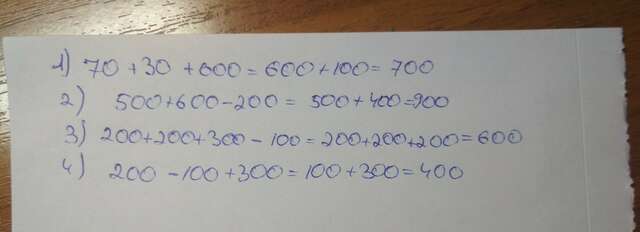 1) 70 + 30 + 600 = 600 + 100 = 700
2) 500 + 600 - 200 = 500 + 400 = 900
3) 200 + 200 + 300 - 100 = 200 + 200 + 200 = 600
4) 200 - 100 + 300 = 100 + 300 = 400